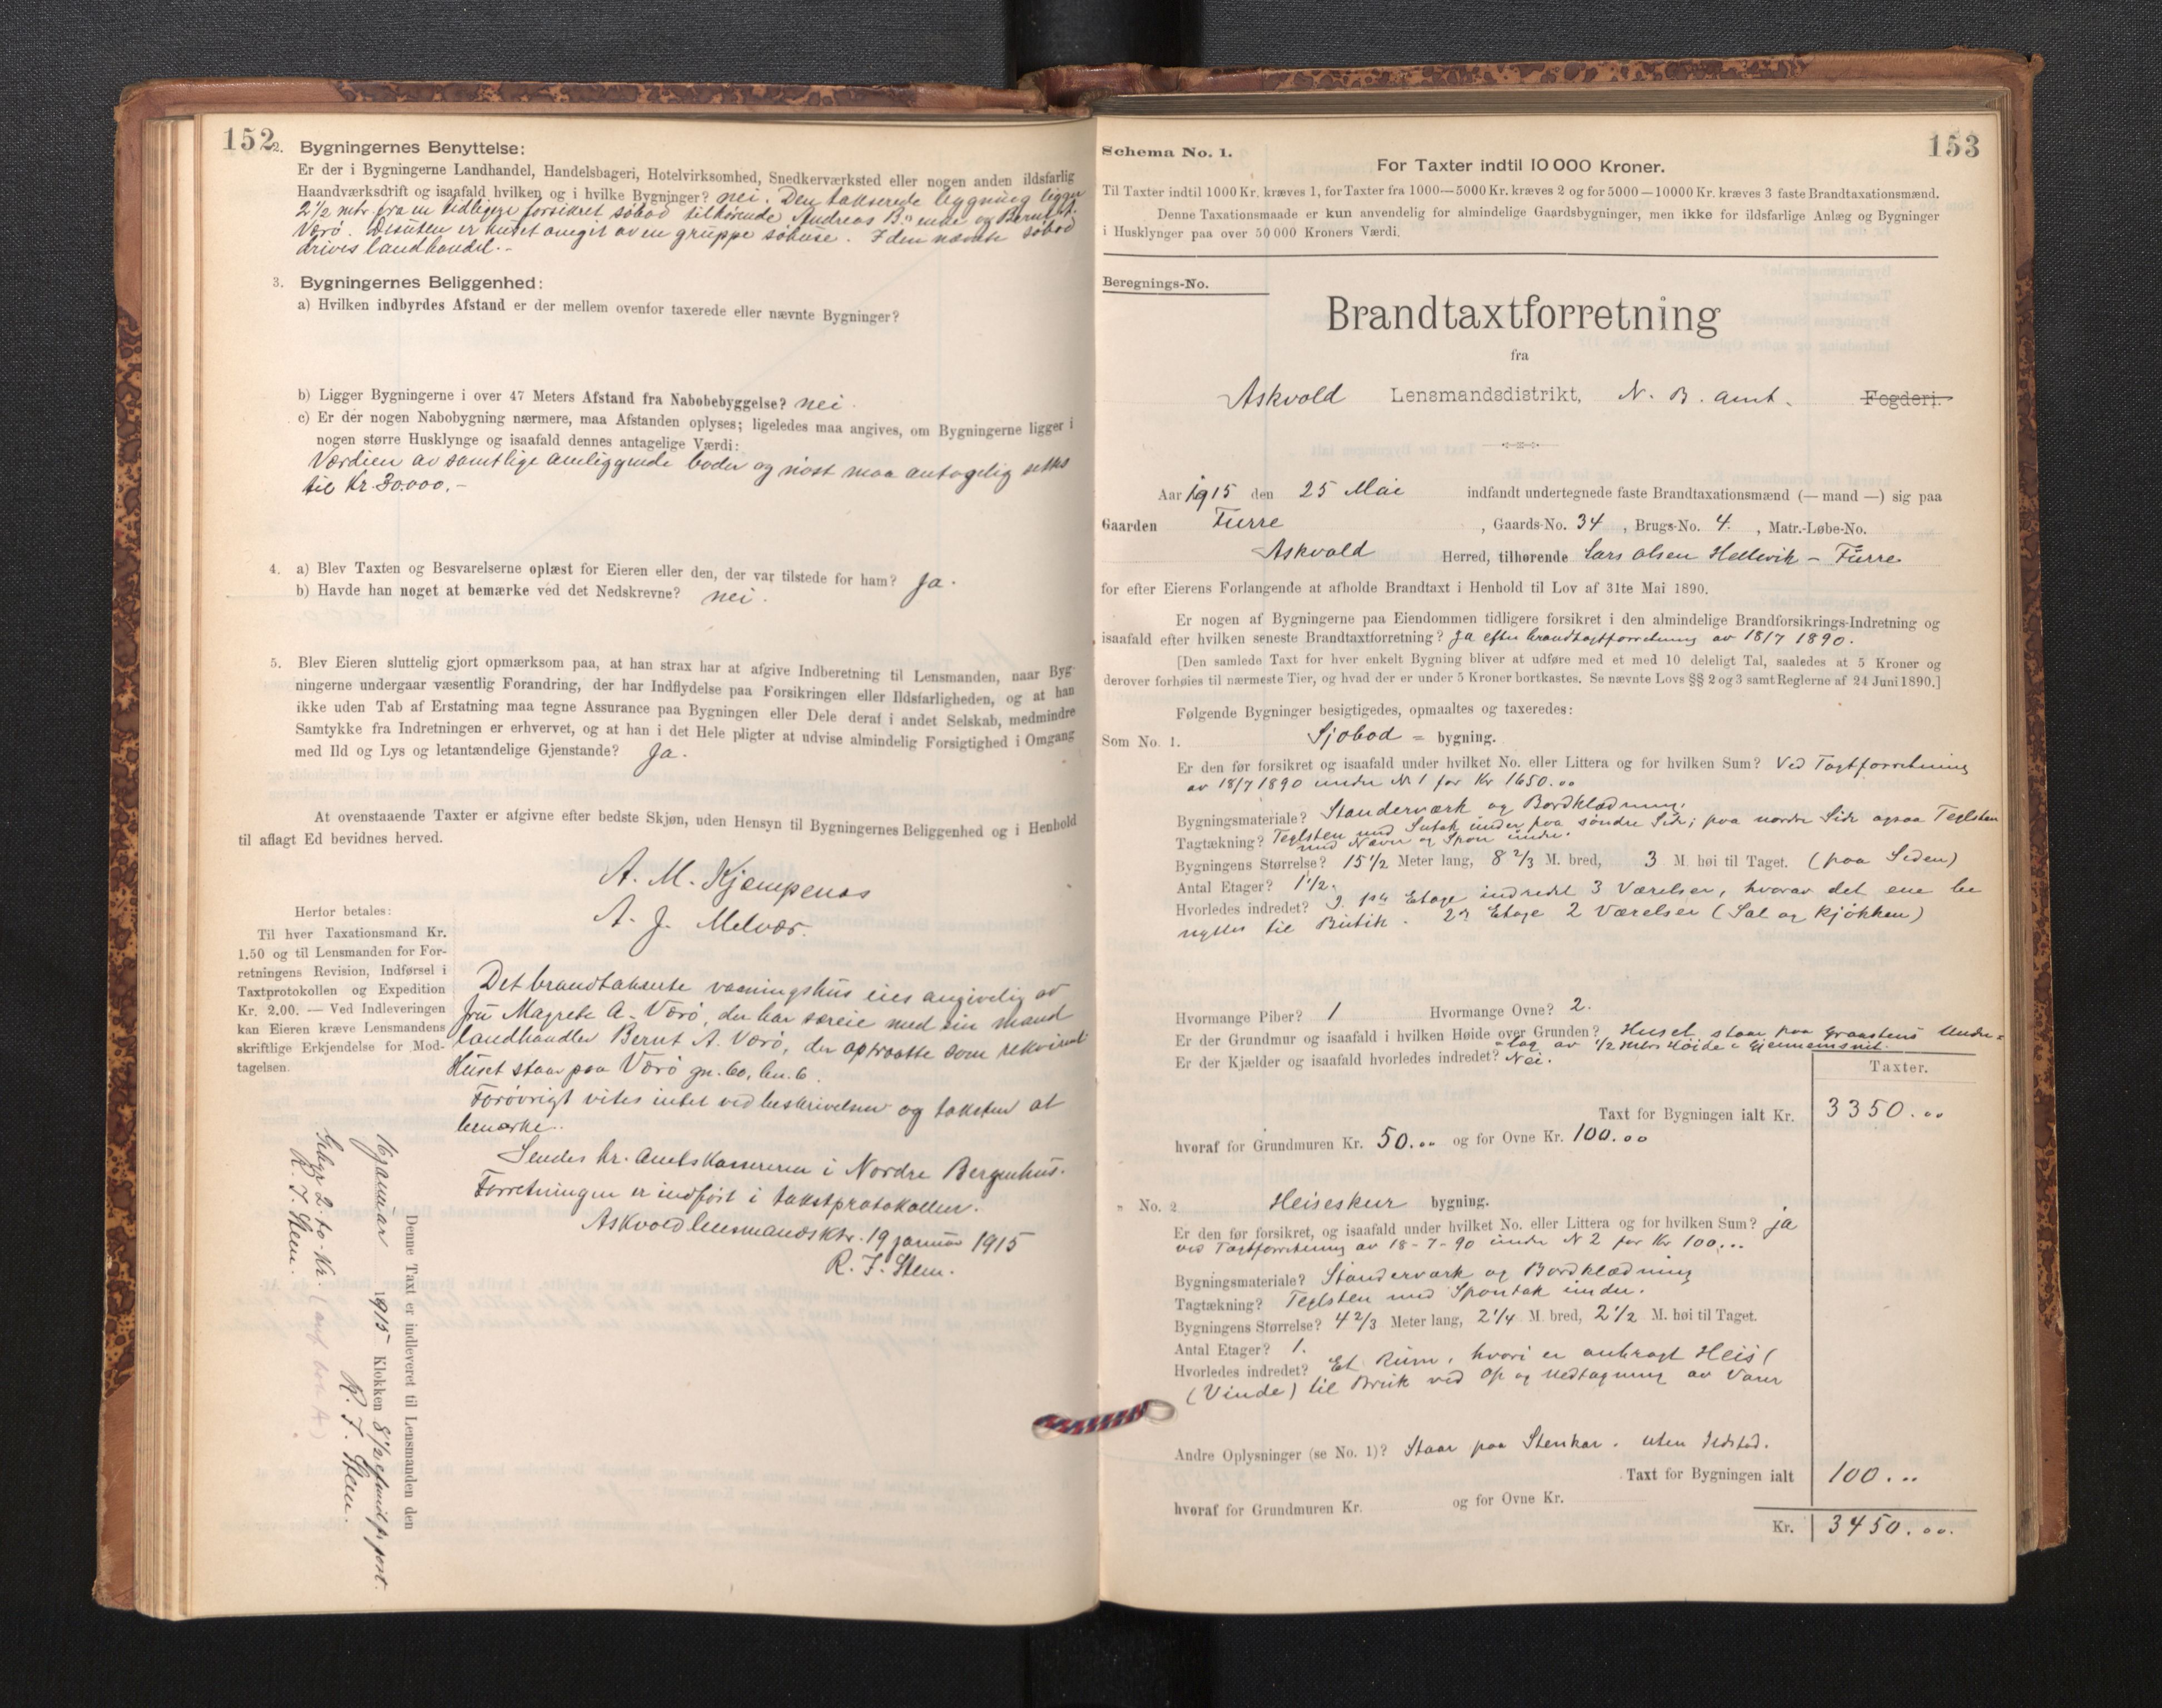 152
2. Bygningernes Benyttelse:
Er der i Bygningerne Landhandel, Handelsbageri, Hotelvirksomhed, Snedkerværksted eller nogen anden ildsfarlig
Haandværksdrift og isaafald hvilken og i hvilke Bygninger? nei. Den takserede bygning ligger
2 1/2 mtr. fra en tidligere forsikret søbod tilhørende Andreas B. og Bernt A.
Værø. Desuten er huset omgit av en gruppe søhuse. I den nævnte søbod
drives landhandel.-
3. Bygningernes Beliggenhed:
a) Hvilken indbyrdes Afstand er der mellem ovenfor taxerede eller nævnte Bygninger?
b) Ligger Bygningerne i over 47 Meters Afstand fra Nabobebyggelse? nei.
c) Er der nogen Nabobygning nærmere, maa Afstanden oplyses; ligeledes maa angives, om Bygningerne ligger i
nogen større Husklynge og isaafald dennes antagelige Værdi:
Værdien av samtlige omliggende boder og nøst maa antagelig settes
til Kr. 30.000.-
4. a) Blev Taxten og Besvarelserne oplæst for Eieren eller den, der var tilstede for ham? Ja.
b) Havde han noget at bemærke ved det Nedskrevne? nei.
5. Blev Eieren sluttelig gjort opmærksom paa, at han strax har at afgive Indberetning til Lensmanden, naar Byg-
ningerne undergaar væsentlig Forandring, der har Indflydelse paa Forsikringen eller Ildsfarligheden, og at han
ikke uden Tab af Erstatning maa tegne Assurance paa Bygningen eller Dele deraf i andet Selskab, medmindre
Samtykke fra Indretningen er erhvervet, og at han i det Hele pligter at udvise almindelig Forsigtighed i Omgang
med Ild og Lys og letantændelige Gjenstande? Ja.
At ovenstaaende Taxter er afgivne efter bedste Skjøn, uden Hensyn til Bygningernes Beliggenhed og i Henhold
til aflagt Ed bevidnes herved.
A. M. Kjempenes
A. J. Melvær.
Herfor betales:
Til hver Taxationsmand Kr.
1.50 og til Lensmanden for For-
retningens Revision, Indførsel i
Taxtprotokollen og Expedition
Kr. 2.00. — Ved Indleveringen
kan Eieren kræve Lensmandens
skriftlige Erkjendelse for Mod-
tagelsen.
Det brandtakserte vaaningshus eies angivelig av
fru Magrete A. Værø, der har særeie med sin mand
landhandler Bernt A. Værø, der optraatte som rekvirent
Huset staar paa Værø gn. 60, bn. 6.
Forøvrigt vites intet ved beskrivelsen og taksten at
bemerke.
Sendes hr. Amtskassereren i Nordre Bergenhus.
Forretningen er indført i takstprotokollen.
Askvold lensmandsktr. 19 januar 1915
R. J. Steen.
Denne Taxt er indleveret til Lensmanden den
16 januar 1915 Klokken 8 1/2 efmid. p. post.
R. J. Steen.
Gebyr 2 - to - Kr.
R. J. Steen.
153
Schema No. 1.
For Taxter indtil 10 000 Kroner.
Til Taxter indtil 1000 Kr. kræves 1, for Taxter fra 1000—5000 Kr. kræves 2 og for 5000—10000 Kr. kræves 3 faste Brandtaxationsmænd.
Denne Taxationsmaade er kun anvendelig for almindelige Gaardsbygninger, men ikke for ildsfarlige Anlæg og Bygninger
i Husklynger paa over 50 000 Kroners Værdi.
Beregnings-No.
Brandtaxtforretning
fra
Askvold Lensmandsdistrikt, N. B. amt. Fogderi.
Aar 1915 den 25 Mai indfandt undertegnede faste Brandtaxationsmænd (— mand —) sig paa
Gaarden Furre, Gaards-No. 34, Brugs-No. 4., Matr.-Løbe-No.
Askvold Herred, tilhørende Lars Olsen Hellevik - Furre
for efter Eierens Forlangende at afholde Brandtaxt i Henhold til Lov af 31te Mai 1890.
Er nogen af Bygningerne paa Eiendommen tidligere forsikret i den almindelige Brandforsikrings-Indretning og
isaafald efter hvilken seneste Brandtaxtforretning? Ja efter brandtaxtforretning av 18/7 1890.
[Den samlede Taxt for hver enkelt Bygning bliver at udføre med et med 10 deleligt Tal, saaledes at 5 Kroner og
derover forhøies til nærmeste Tier, og hvad der er under 5 Kroner bortkastes. Se nævnte Lovs §§ 2 og 3 samt Reglerne af 24 Juni 1890.]
Følgende Bygninger besigtigedes, opmaaltes og taxeredes:
Som No. 1. Sjøbod = bygning.
Er den før forsikret og isaafald under hvilket No. eller Littera og for hvilken Sum? Ved Taxtforretning
av 18/7 1890 under N 1 for Kr 1650.00
Bygningsmateriale? Stenderværk og Bordklædning.
Tagtækning? Teglsten med Sutak under paa søndre Side; paa nordre Side ogsaa Teglsten
med Næver og Spon under.
Bygningens Størrelse? 15 1/2 Meter lang, 8 2/3 M. bred, 3 M. høi til Taget. (paa Siden)
Antal Etager? 1 1/2.
Hvorledes indredet? I 1ste Etage indredet 3 Værelser, hvorav det ene be
nyttes til Butik. 2den Etage 2 Værelser (Sal og Kjøkken)
Hvormange Piber? 1 Hvormange Ovne? 2.
Er der Grundmur og isaafald i hvilken Høide over Grunden? Huset staar paa Graastens Under-
lag av 1/2 Meters Høide i Gjennemsnit.
Er der Kjælder og isaafald hvorledes indredet? Nei.
Taxter.
Taxt for Bygningen ialt Kr. 3350.00
hvoraf for Grundmuren Kr. 50.00 og for Ovne Kr. 100.00
" No. 2 Heiseskur bygning.
Er den før forsikret, og isaafald under hvilket No. eller Littera og for hvilken Sum? Ja
ved Taxtforretning av 18-7-90 under N 2 for Kr 100...
Bygningsmateriale? Stenderværk og Bordklædning
Tagtækning? Teglsten med Spontak under.
Bygningens Størrelse? 4 2/3 Meter lang, 2 1/4 M. bred, 2 1/2 M. høi til Taget.
Antal Etager? 1.
Hvorledes indredet? Et Rum, hvori er anbragt Heis (
(Vinde) til Bruk ved Op og Nedtagning av Varer
Andre Oplysninger (se No. 1)? Staar paa Stenkar. uten Ildsted.
Taxt for Bygningen ialt 100...
hvoraf for Grundmuren Kr. og for Ovne Kr.
Kr. 3450.00.